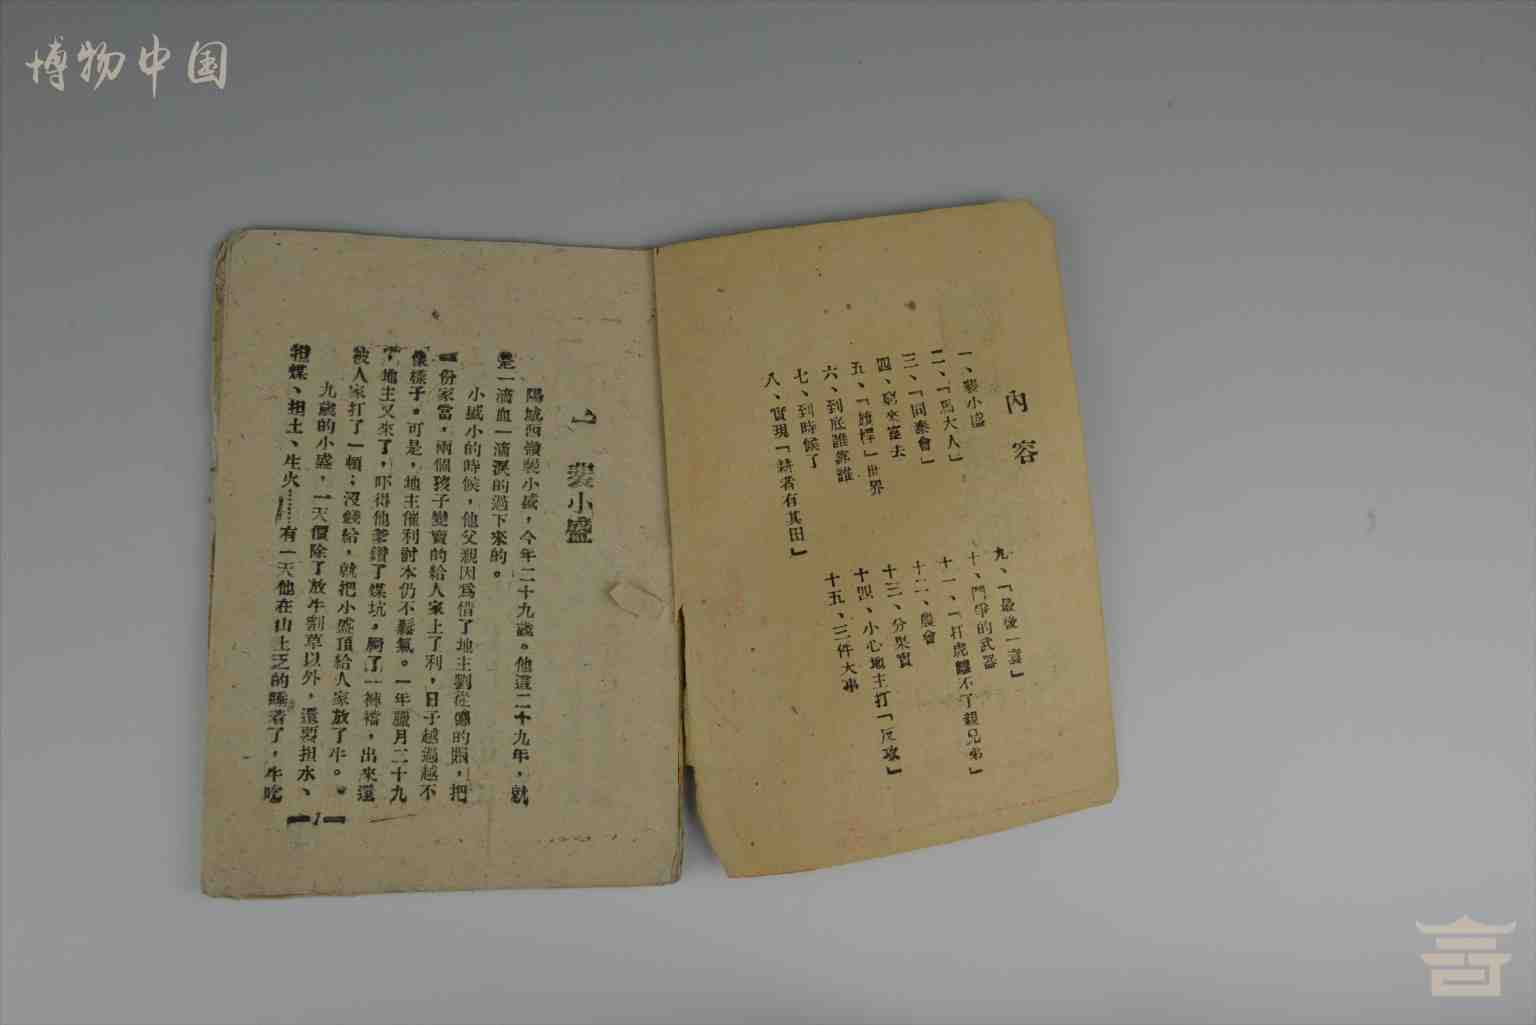 博物中国
內容
一、裴小盛
二、「馬大人」
三、「同泰會」
四、窮來富去
五、「鐵桿」世界
六、到底誰靠誰
七、到時候了
八、實現「耕者有其田」
九、「最後一書」
十、鬥爭的武器
十一、「打虎離不了親兄弟」
十二、農會
十三、分果實
十四、小心地主打「反攻」
十五、三件大事
一 裴小盛
陽城西嶺裴小盛，今年二十九歲。他這二十九年，就
是一滴血一滴淚的過下來的。
小盛小的時候，他父親因爲借了地主劉從的賬，把
一份家當，兩個孩子變賣的給人家上了利，日子越過越不
像樣子。可是，地主催利討本仍不鬆氣。一年臘月二十九
，地主又來了，吓得他爹鑽了煤坑，屙了一褲襠，出來還
被人家打了一頓；沒錢給，就把小盛頂給人家放了牛。
九歲的小盛，一天價除了放牛割草以外，還要担水、
担煤、担土、生火……有一天他在山上乏的睡着了，牛吃
1